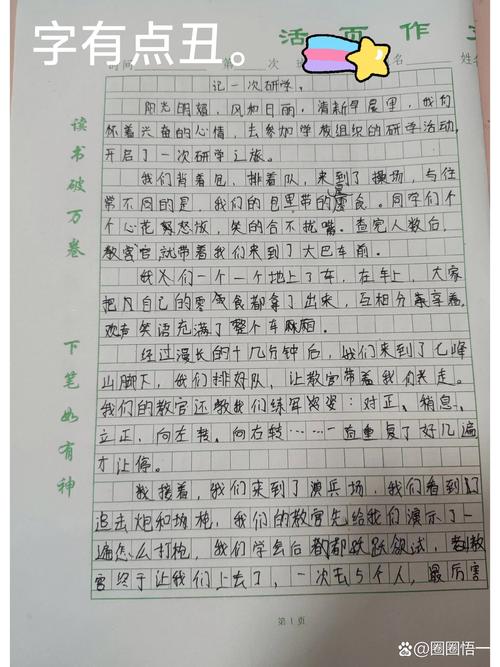 字有点丑。
活页作文
时间 第 次 名 姓名
读书破万卷
下笔如有神
记一次研学。
阳光明媚,风和日丽,清新早晨里,我们
怀着兴奋的心情,去参加学校组织的研学活动,
开启了一次研学之旅。
我们背着包,排着队,来到了操场,与往
常不同的是,我们的包里带的是零食。同学们个
个心花怒放,笑的合不拢嘴。查完人数后,
教官就带着我们来到了大巴车前。
我们一个一个地上了车,在车上,大家
把自己的零食都拿了出来,互相分享着,
欢声笑语充满了整个车厢。
经过漫长的十几分钟后,我们来到了七峰
山脚下,我们排好队,让教官带着我们走。
我们的教官还教我们练军姿:对正、稍息、
立正、向左转、向右转……一直重复了好几遍
才让停。
接着,我们来到了演兵场,我们看到了
追击炮和场枪,我们的教官先给我们演示了一
遍怎么打枪,我们学会后都跃跃欲试,教
官终于让我们上去了,一次去5个人,最厉害
第1页
@圈圈悟一